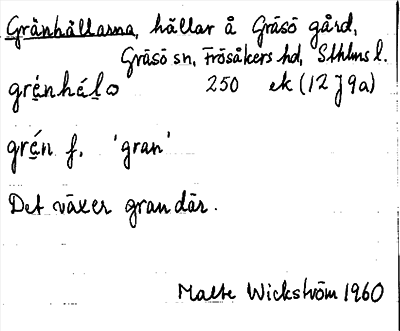 Gränhällarna, hällar å Gräsö gård,
Gräsö sn, Frösåkers hd, Sthlms l.
grẹ́nhéḷo 250 ek (12 J 9a)
grẹ́n f. 'gran'
Det växer gran där.
Malte Wickström 1960